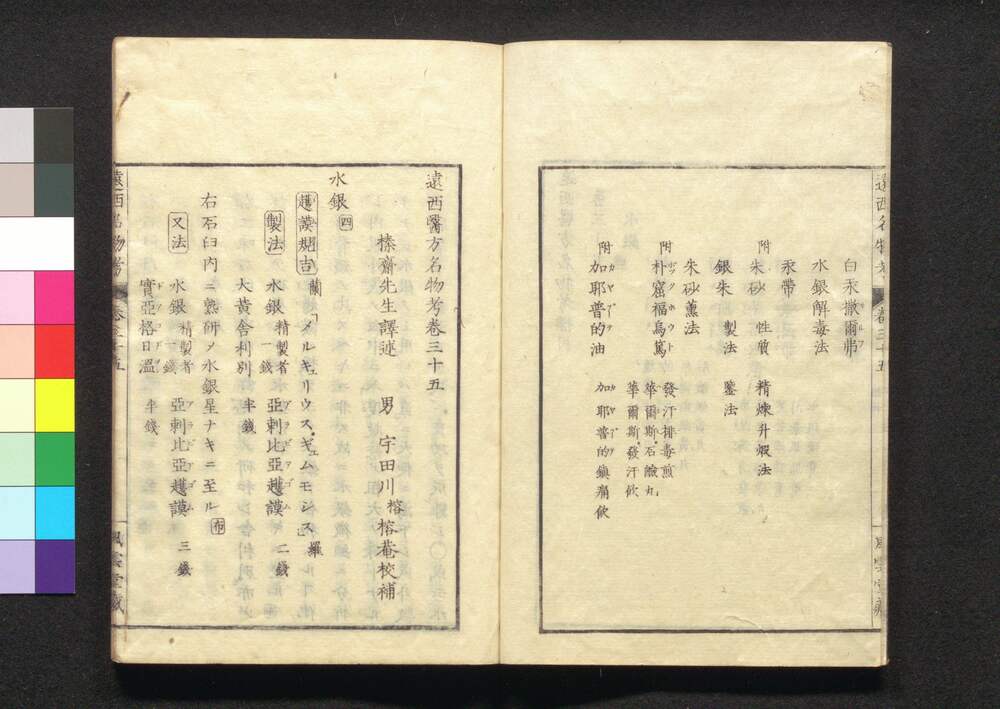 白汞撒爾弗
水銀解毒法
汞帶
附 朱砂 性質 精煉升煅法
銀朱 製法 鑒法
朱砂薫法
附 朴窟福烏篤 發汗排毒煎
華爾斯石鹼丸
華爾斯發汗飲
附 加耶普的油 加耶普的鎮痛飲
遠西醫方名物考卷三十五
榛齋先生譯述 男 宇田川榕 榕菴校補
水銀 四
趯謨規吉 蘭 「メルキュリウス、ギュムモシス」羅
製法 水銀 精製者 一錢 亞剌比亞趯謨 二錢
大黄舎利別 半錢
右石臼内ニ熟研メ水銀星ナキニ至ル 布
又法 水銀 精製者 一錢 亞剌比亞趯謨 三錢
實亞格日溫 半錢
遠西名物考 卷三十五
風雲堂藏